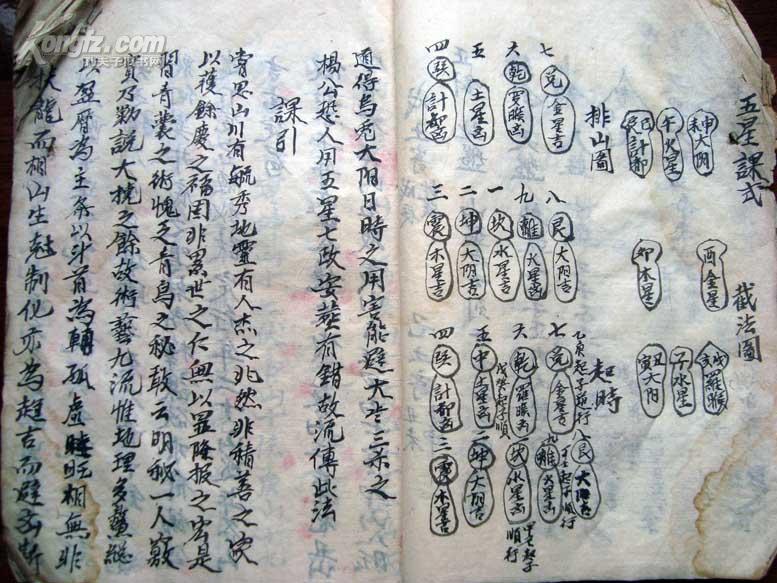 五星課式
截法圖
申未大阴
午火星
巳辰計都
酉金星
卯木星
戌亥羅睺
子水星
丑寅大阳
排山圖
七兑金星吉
六乾罗睺凶
五土星凶
四巽計都凶
八艮大阳吉
九離火星凶
一坎水星吉
二坤大阴吉
三震木星吉
起時
七兑金星吉
六乾羅睺凶
五中土星凶
四巽計都凶
八艮大阳吉
九離火星凶
一坎水星吉
二坤大阴吉
三震木星吉
道得烏兎大阳日時之用害能避大吉三杀之
楊公恐人用五星七政安葬有錯故流傳此法
課引
嘗思山川有毓秀地靈有人杰之兆然非積善之家
以獲餘慶之福因非累世之仁無以罪降报之容是
習青囊之術愧乏青鳥之秘敢云明秘一人竅
乃勒說大撓之餘故術藝九流惟地理多
盤曆為主条以斗首為輔孤虚旺相無非
扶龍而相山生尅制化亦為趋吉而避凶
Kongfz.com